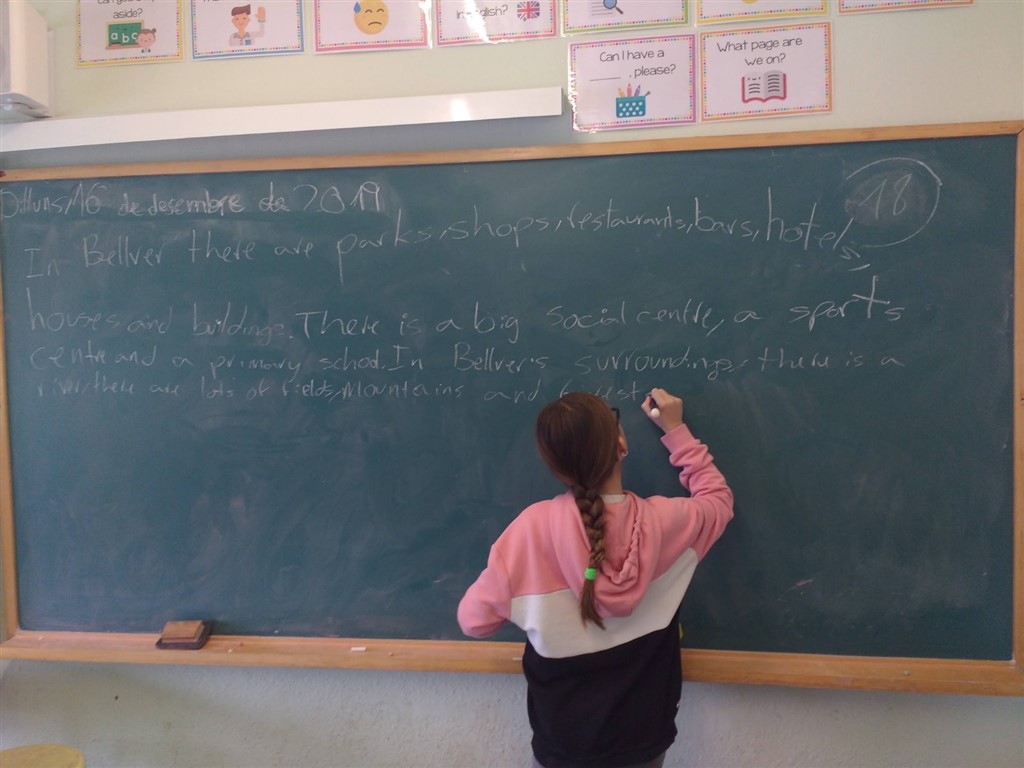 aside?
abc
in English?
Can I have a
____, please?
What page are
we on?
Dilluns, 16 de desembre de 2019
18
In Bellver there are parks, shops, restaurants, bars, hotels,
houses and buildings. There is a big social centre, a sports
centre and a primary school. In Bellver's surroundings there is a
river, there are lots of fields, mountains and forest